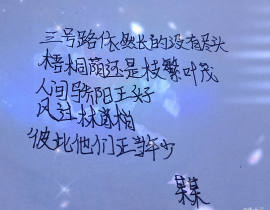 三号路依然长的没有尽头
梧桐荫还是枝繁叶茂
人间骄阳正好
风过林梢
彼此他们正当年少
某某